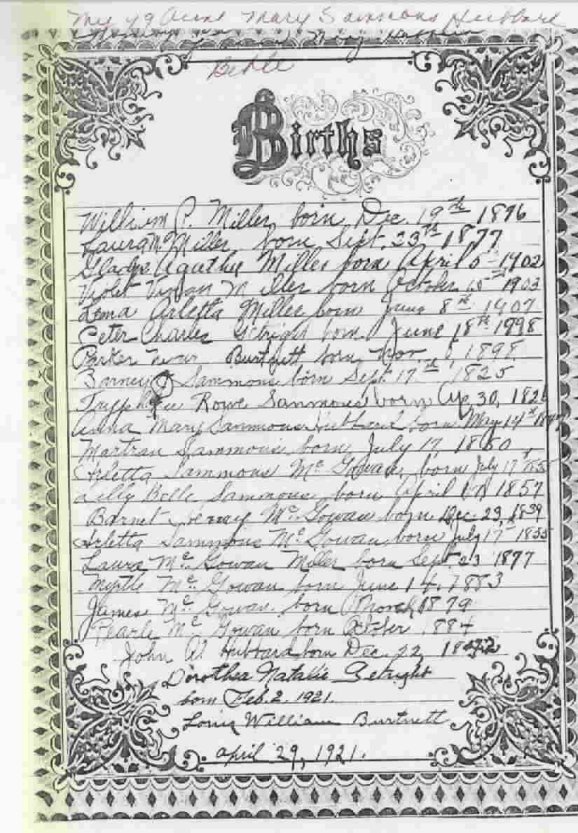 My Aunt Mary Sammons Hubbard
Bible
Births
William P. Miller born Dec 19th 1876
Laura M Miller, born Sept. 23th 1877
Gladys Agatha Miller born April 5th 1902
Violet Vivian Miller born October 15th 1903
Lema Arletta Miller born June 8th 1907
Peter Charles Getright born June 18th 1998
Parker Burtnett born Nov 1898
Barney Sammons born Sept 17th 1825
Rowe Sammons born 30, 182
Anna Mary Sammons Hubbard born May 14th
Martran Sammons born July 17, 1860
Arletta Sammons Mc Gowan, born July 17 1855
Lilly Belle Sammons born April 1857
Barnet Henry Mc Gowan born Dec. 29, 1839
Arletta Sammons Mc Gowan born July 17th 1855
Laura Mc Gowan Miller born Sept 23 1877
Myrtle Mc Gowan born June 14, 1883
James Mc Gowan born March 1879
Pearle Mc Gowan born October 1884
John A Hubbard born Dec 22, 1842
Dorothea Natalie Getright
born Feb. 2. 1921.
William Burtnett
april 29, 1921.